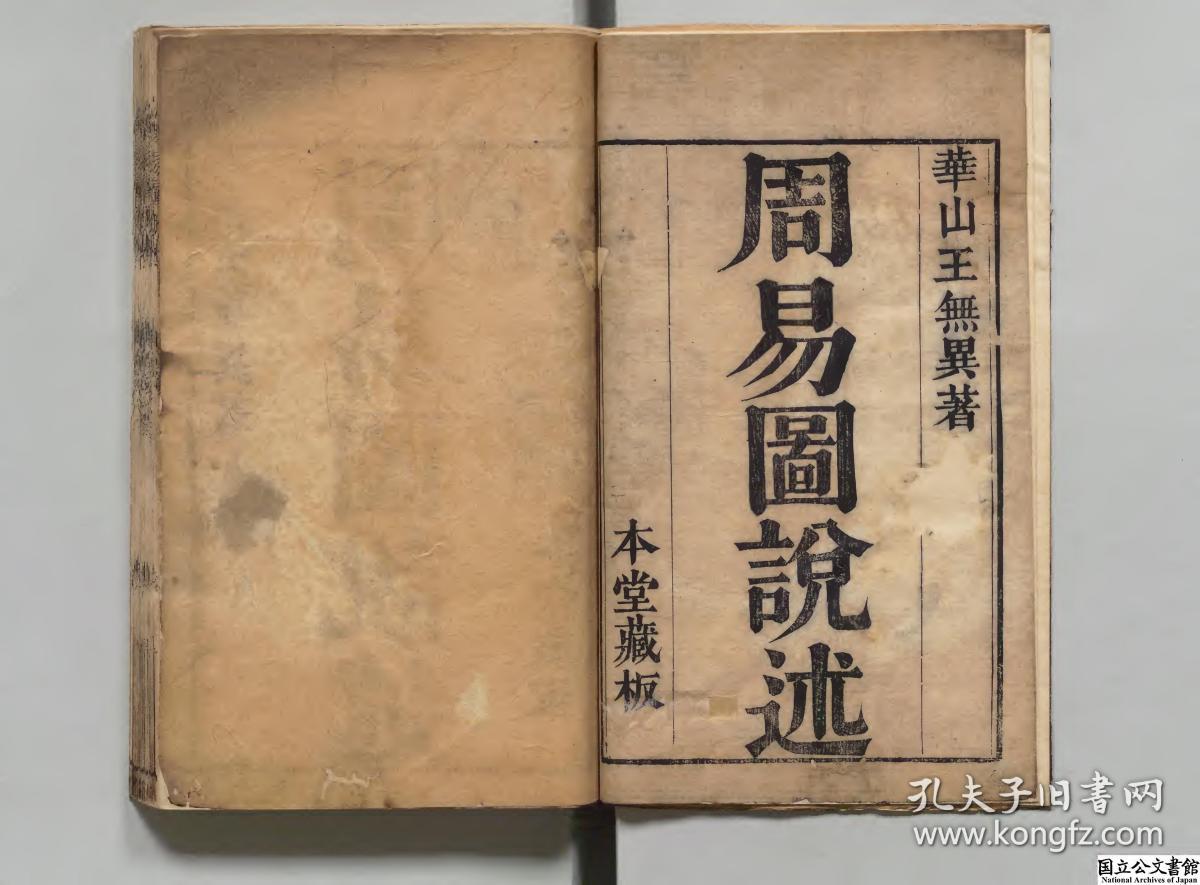 華山王無異著
周易圖說述
本堂藏板
孔夫子旧書网
www.kongfz.com
国立公文書館
National Archives of Japan